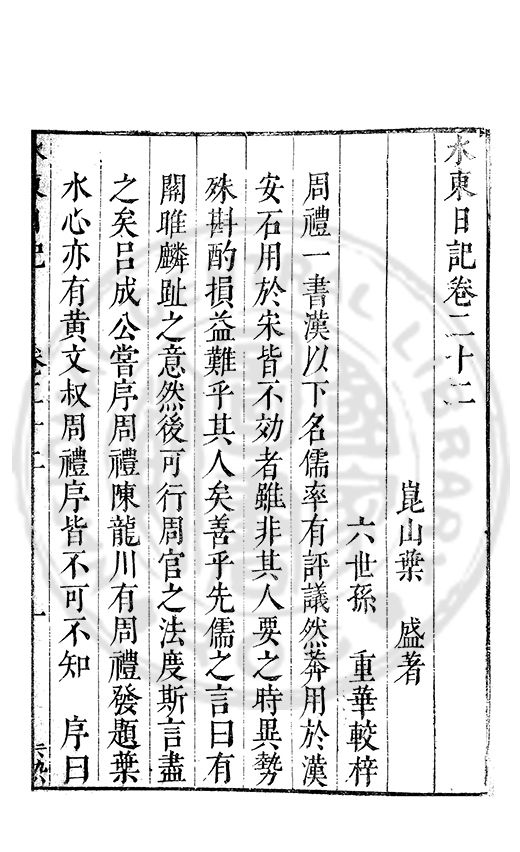 水東日記卷二十二
崑山葉　盛著
六世孫　重華較梓
周禮一書漢以下名儒率有評議然莽用於漢
安石用於宋皆不効者雖非其人要之時異勢
殊斟酌損益難乎其人矣善乎先儒之言曰有
關雎麟趾之意然後可行周官之法度斯言盡
之矣呂成公嘗序周禮陳龍川有周禮發題葉
水心亦有黃文叔周禮序皆不可不知　序曰
水東日記　卷二十二　一